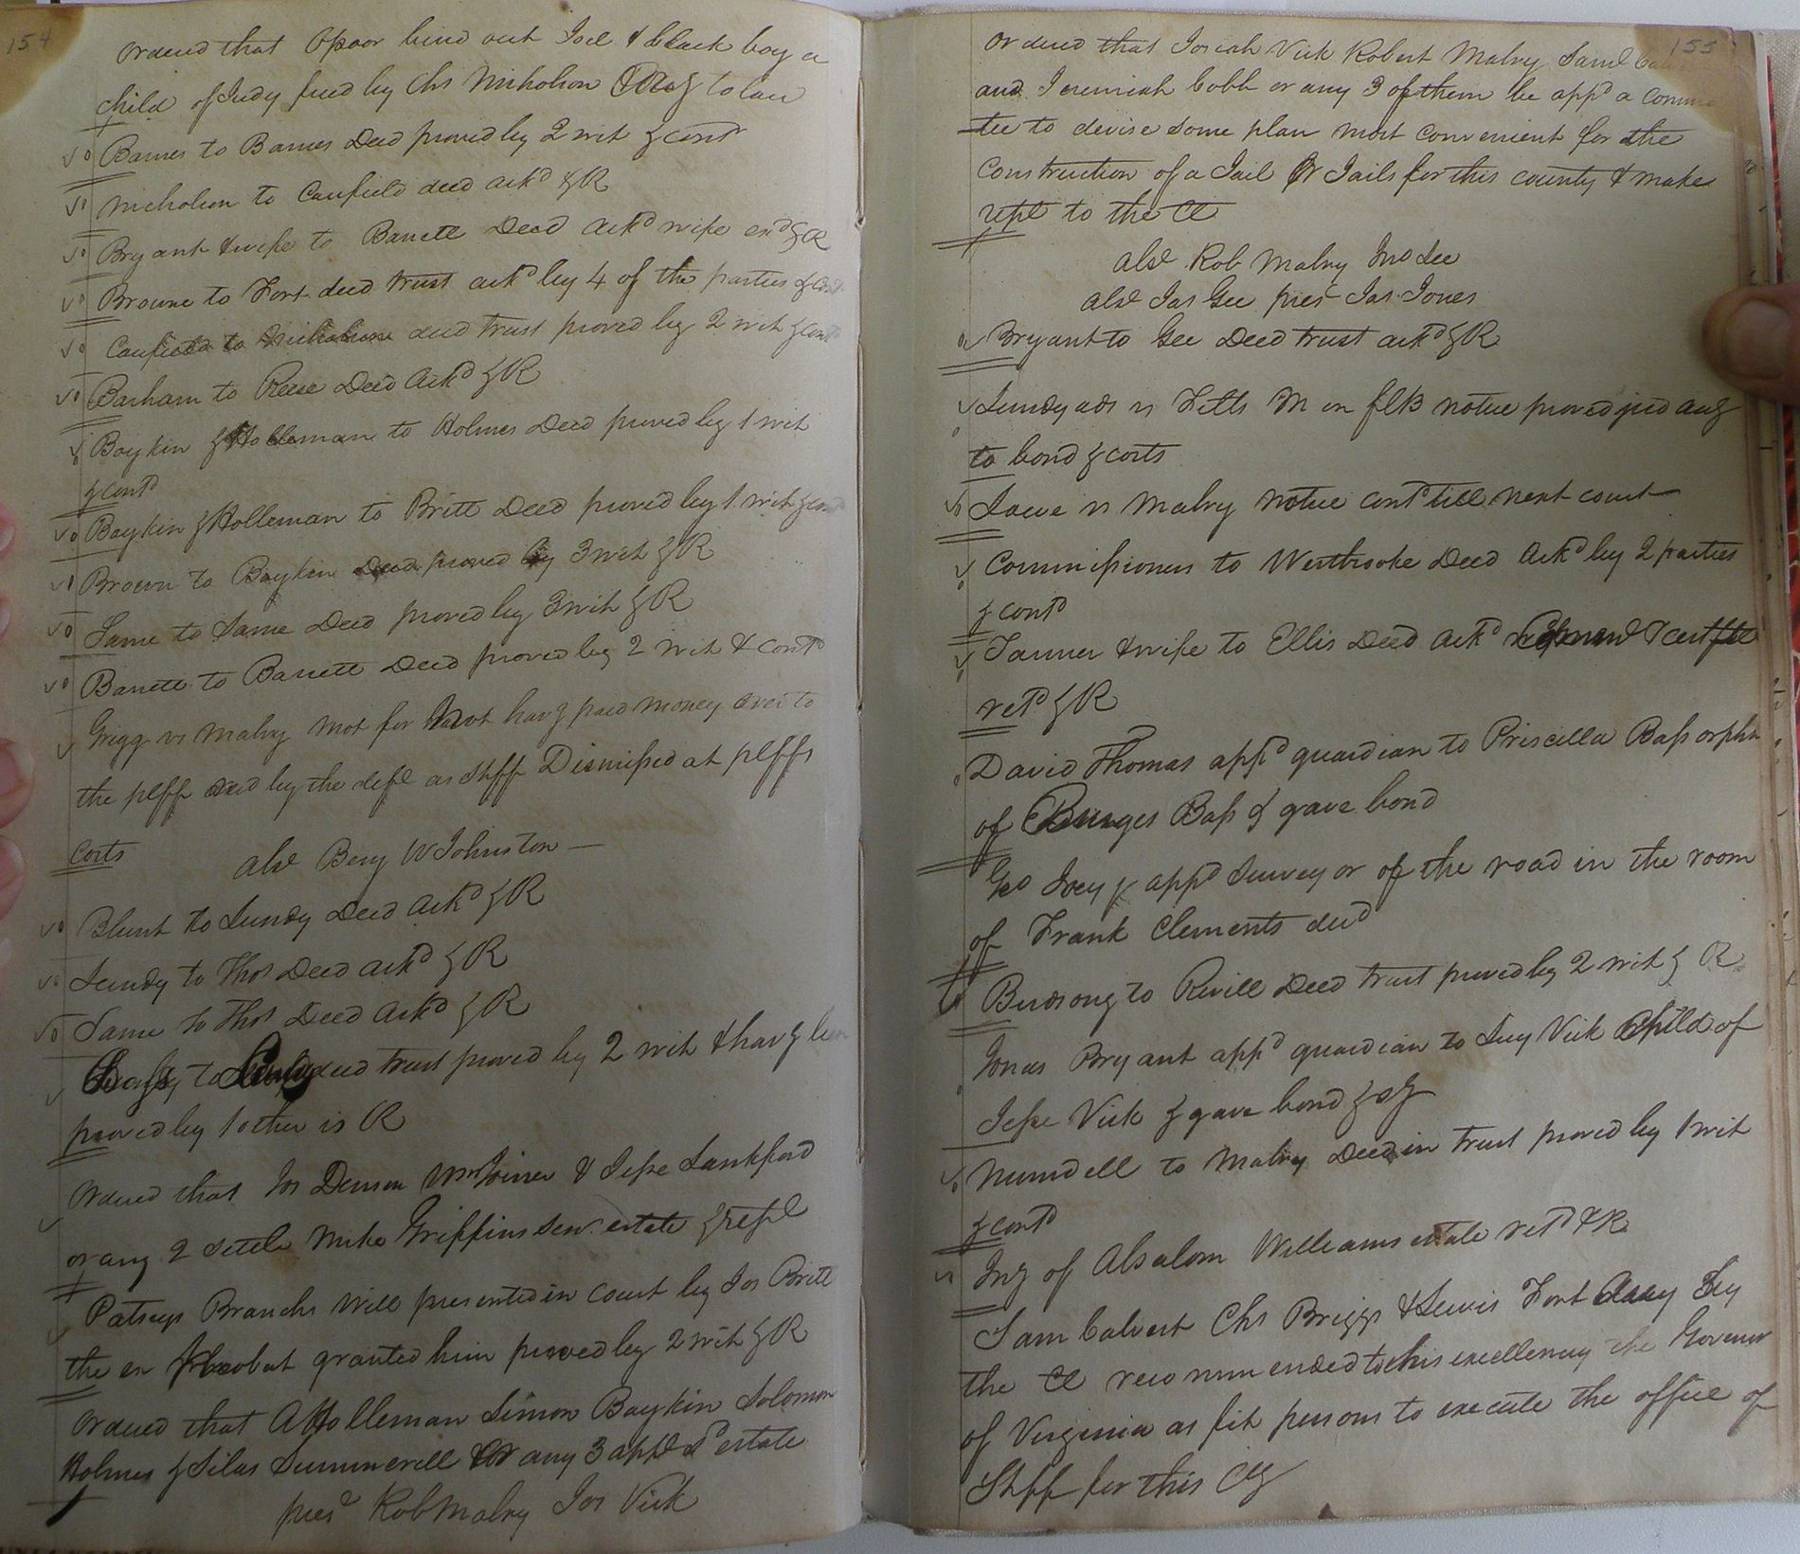 154
Ordered that Opoor bind out Joel a black boy a
child of Judy freed by Chs Nicholson accg to law
Barnes to Barnes Deed proved by 2 wit & contd
Nicholson to Caufield deed ackd & R
Bryant & wife to Barrett Deed ackd wife exd & R
Browne to Fort deed trust ackd by 4 of the parties &
Caufield to Nicholson deed trust proved by 2 wit & contd
Barham to Reese Deed Ackd & R
Boykin & Holleman to Holmes Deed proved by 1 wit
& contd
Boykin & Holleman to Britt Deed proved by 1 wit &
Brown to Boykin Deed proved by 3 wit & R
Same to Same Deed proved by 3 wit & R
Barrett to Barrett Deed proved by 2 wit & contd
Grigg vs Malry Mot for not havg paid money over to
the plff by the deft as Shff Dismissed at plffs
Costs
abst Benj W Johnston —
Blunt to Lundy Deed Ackd & R
Lundy to Thos Deed ackd & R
Same to Thos Deed Ackd & R
to deed trust proved by 2 wit & havg been
proved by 1 other is R
Ordered that Jos Denson Wm Joiner & Jesse Lankford
or any 2 settle Mike Griffins estate & rept
Patseys Branchs Will presented in Court by Jos Britt
the ex probat granted him proved by 2 wit & R
Ordered that A Holleman Simon Boykin Solomon
Holmes & Silas Summerell or any 3 appr sd estate
prest Rob Malry Jos Vick
155
Ordered that Josiah Vick Robert Malry Saml
and Jeremiah Cobb or any 3 of them be appd a Commi
tee to devise some plan most convenient for the
Construction of a Jail or Jails for this county & make
rept to the Ct
abst Rob Malry Jno Lee
abst Jas Gee prest Jas Jones
Bryant to Gee Deed trust ackd & R
Lundy ads vs Fitts M on f l B notice proved jud accg
to bond & costs
Lowe vs Malry notice contd till next court
Commissioners to Westbrooke Deed Ackd by 2 parties
& contd
Tanner & wife to Ellis Deed Ackd & certfte
retd & R
David Thomas appd guardian to Priscilla Bass orphn
of Burges Bass & gave bond
Geo Ivey appd Surveyor of the road in the room
of Frank Clements decd
Birdsong to Revill Deed trust proved by 2 wit & R
Jonas Bryant appd guardian to Lucy Vick Child of
Jesse Vick & gave bond &
Nundell to Malry Deed in trust proved by 1 wit
& contd
Inv of Absalom Williams estate retd & R
Sam Calvert Chs Briggs & Lewis Fort by
the Ct recommended to his excellency the Governor
of Virginia as fit persons to execute the office of
Shff for this Cty